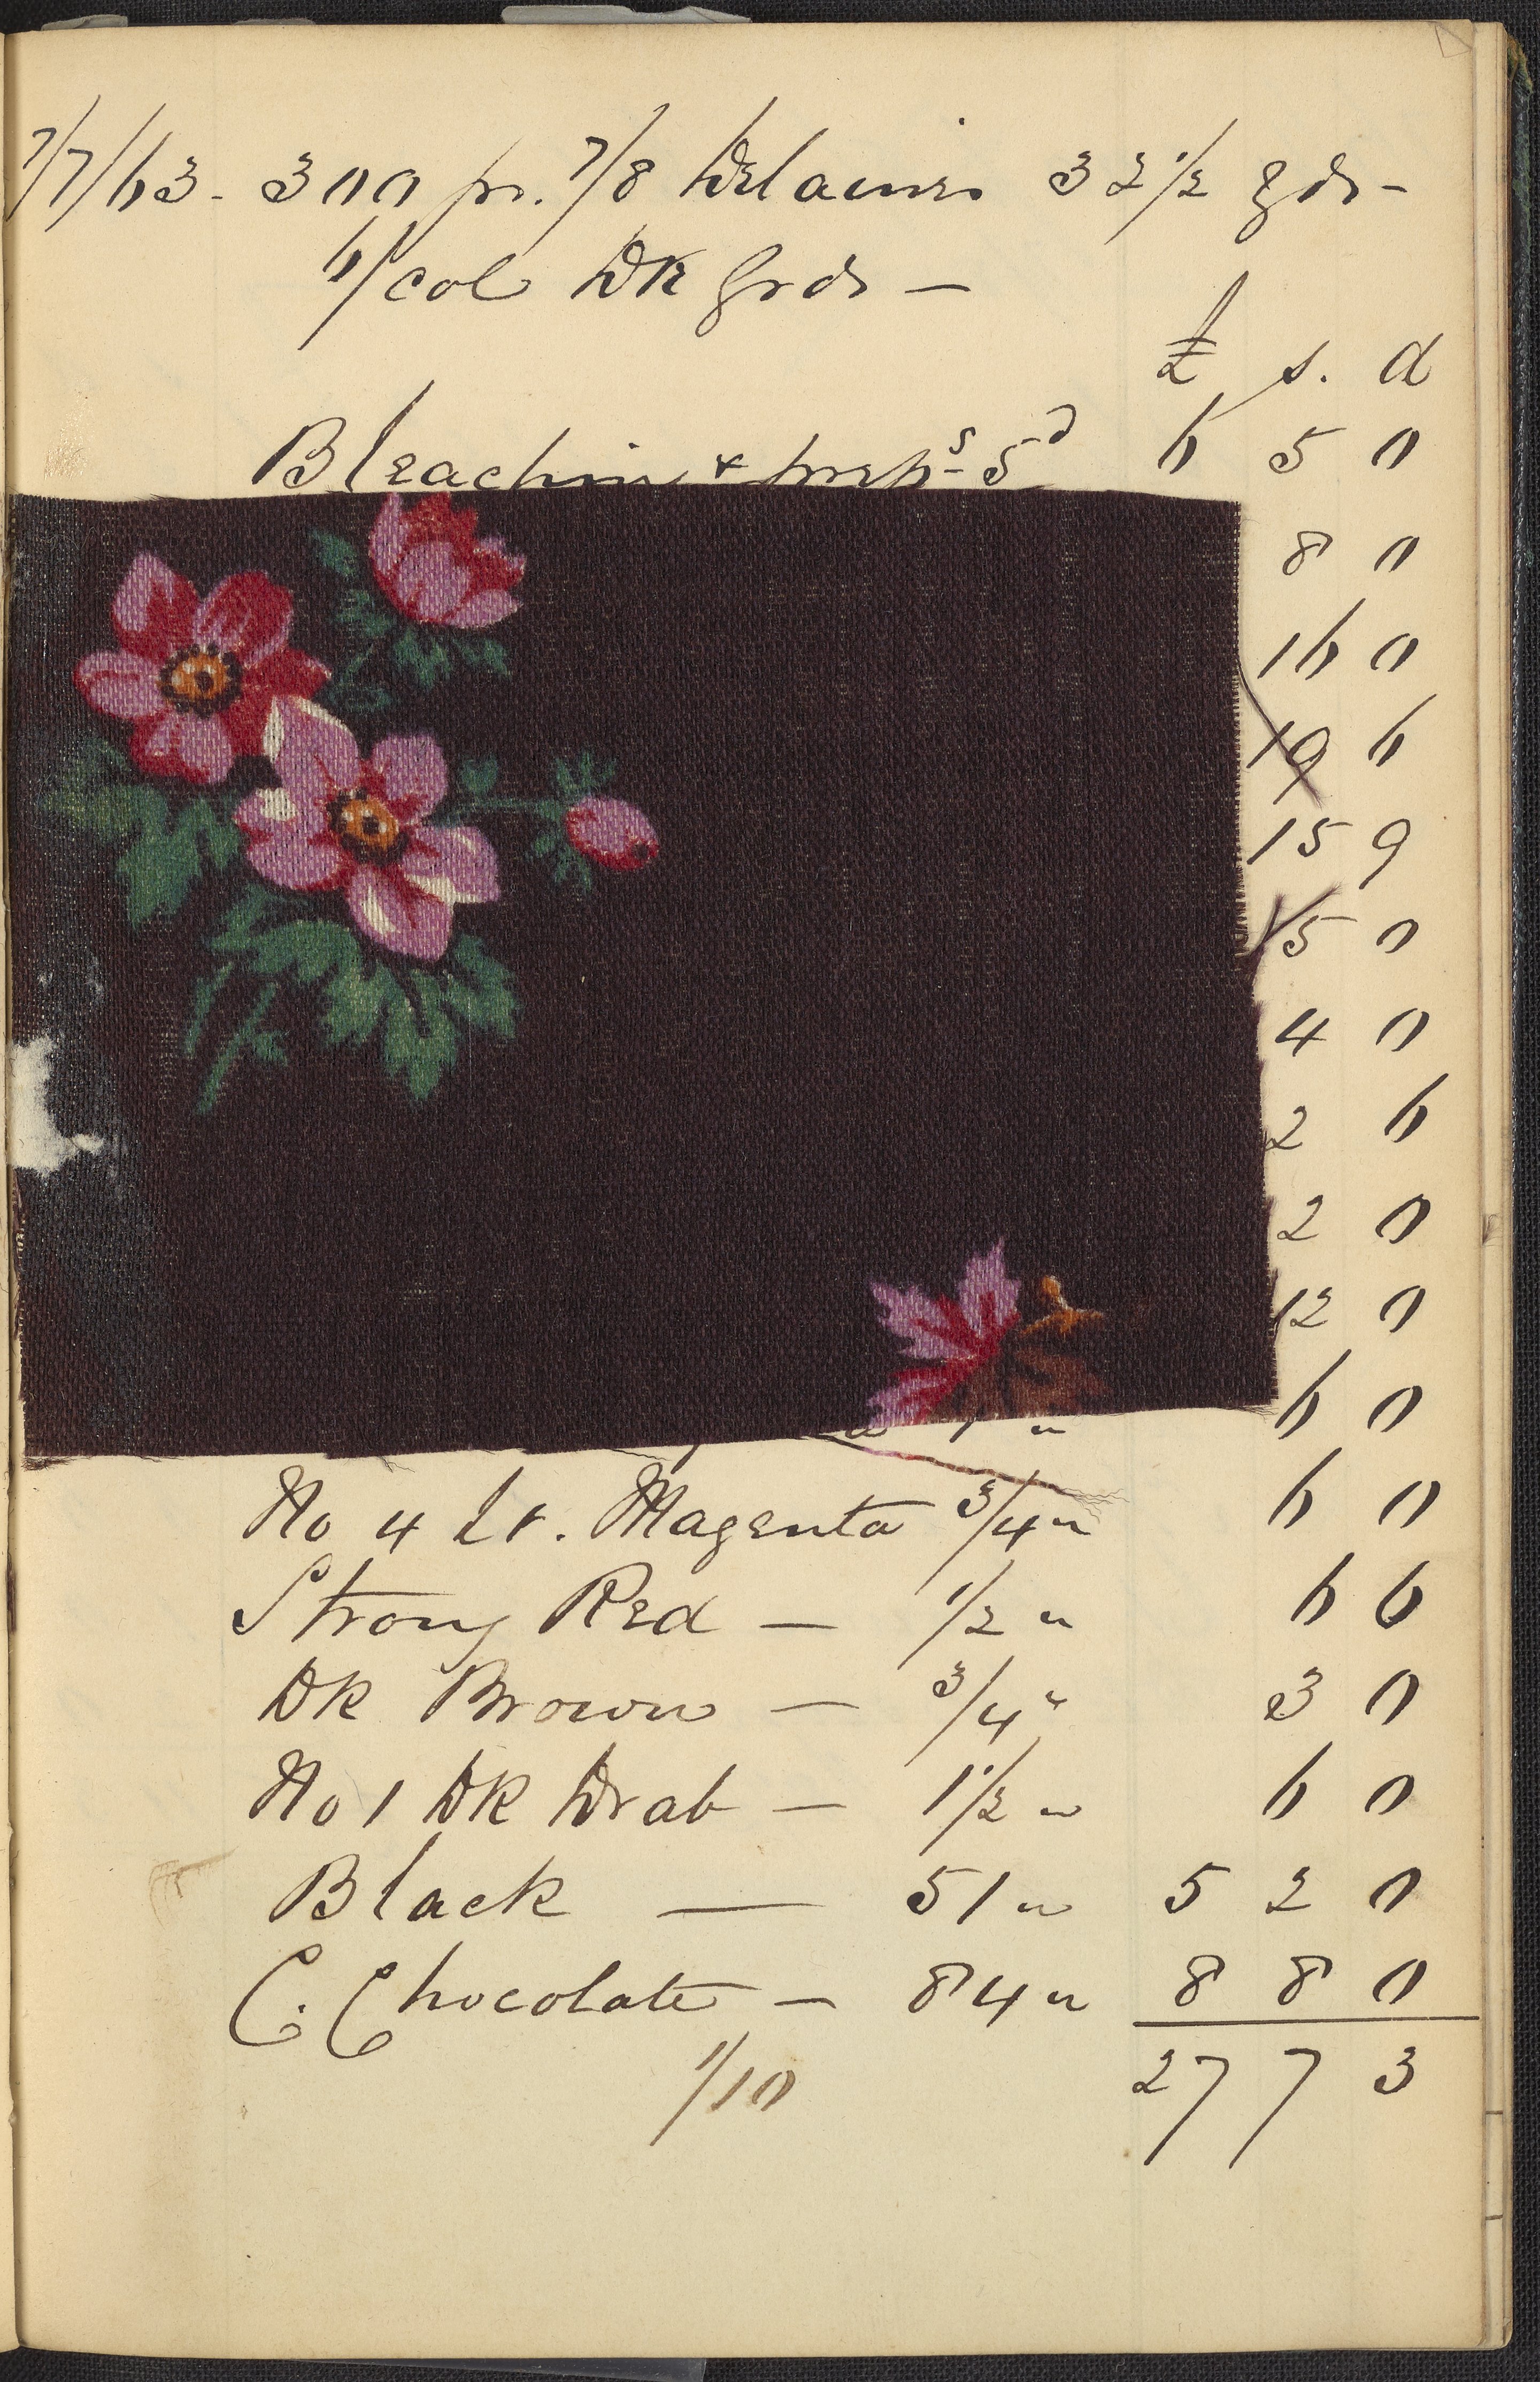 7/7/63. 300 ps. 7/8 Delaines 32 1/2 yds -
6/col Dk Grds -
£ s. d
Bleaching & prep's - 5d 6 5 0
8 0
16 0
19 6
15 9
15 0
4 0
2 6
2 0
12 0
1 " 6 0
No 4 Lt. Magenta 3/4 " 6 0
Strong Red - 1/2 " 6 6
Dk Brown - 3/4 " 3 0
No 1 Dk Drab - 1 1/2 " 6 0
Black - 51 " 5 2 0
C. Chocolate - 84 " 8 8 0
27 7 3
1/10